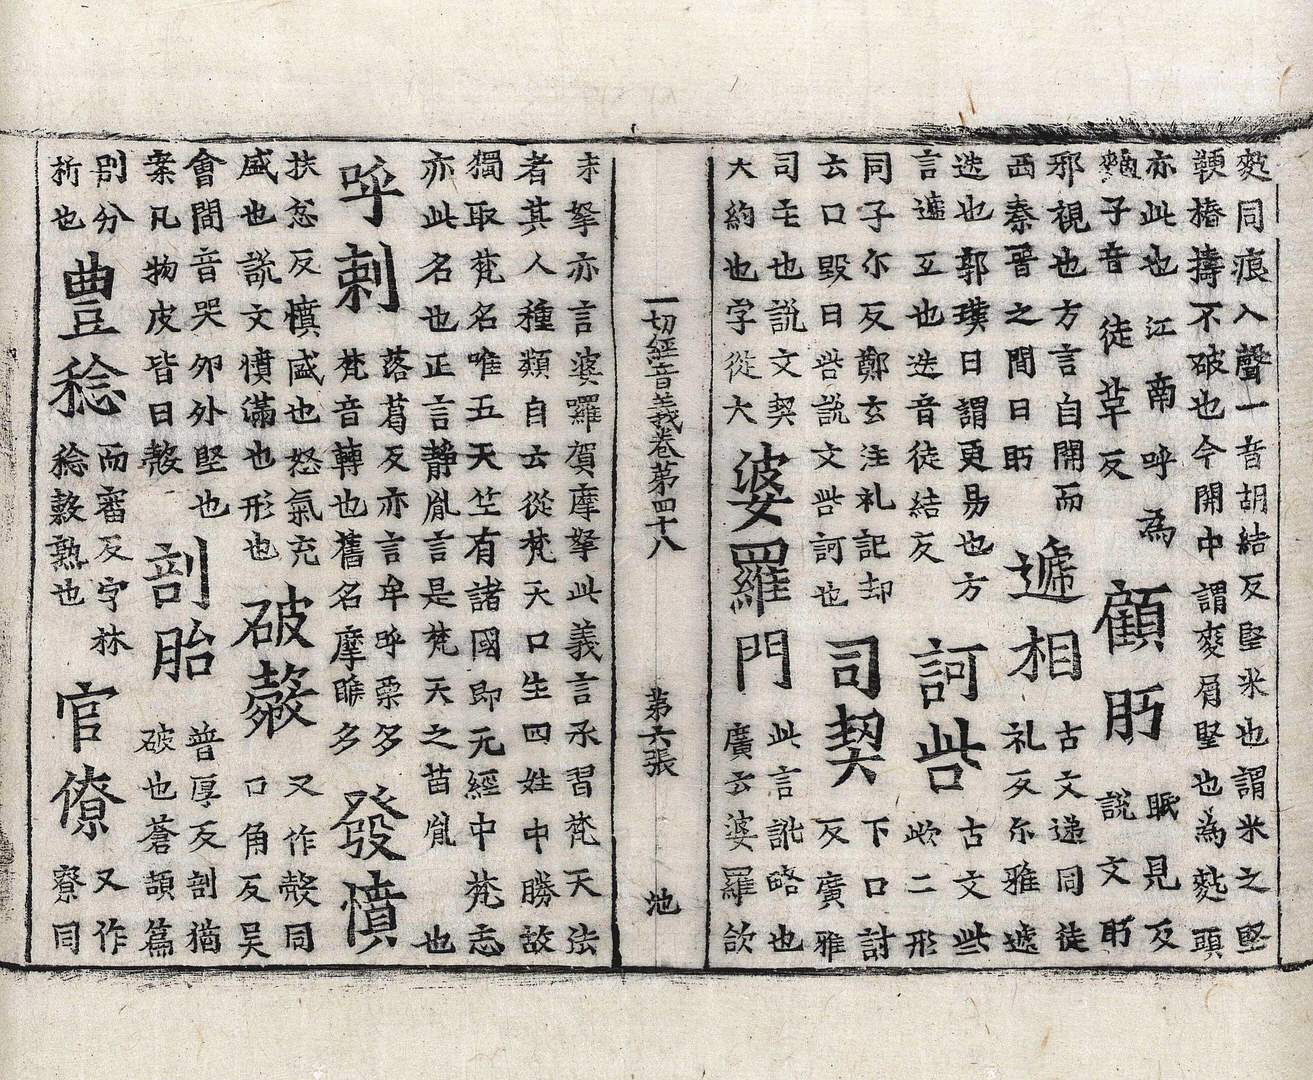 麧同痕入聲一音胡結反堅米也謂米之堅
鞕椿擣不破也今關中謂麥屑堅也為麧頭
亦此也江南呼為
䴬子音徒革反
顧眄
眠見反
說文眄
邪視也方言自關而
西秦晉之間曰眄
遞相
古文递同徒
礼反尔雅遞
迭也郭璞曰謂更易也方
言遞互也迭音徒結反
訶呰
古文些
㱔二形
同子尔反鄭玄注礼記却
云口毀曰呰說文呰訶也
司契
下口討
反廣雅
司主也說文契
大約也字從大
婆羅門
此言訛略也
廣云婆羅欱
一切經音義卷第四十八
第六張
池
末拏亦言婆囉賀摩拏此義言承習梵天法
者其人種類自云從梵天口生四姓中勝故
獨取梵名唯五天竺有諸國即无經中梵志
亦此名也正言靜胤言是梵天之苗胤也
呼剌
落葛反亦言牟呼栗多
梵音轉也舊名摩睺多
發憤
扶忿反憤盛也怒氣充
盛也說文憤滿也形也
破㲉
又作㱿同
口角反吳
會間音哭卵外堅也
案凡物皮皆曰㲉
剖胎
普厚反剖猶
破也蒼頡篇
別分
析也
豊稔
而審反字林
稔穀熟也
官僚
又作
寮同